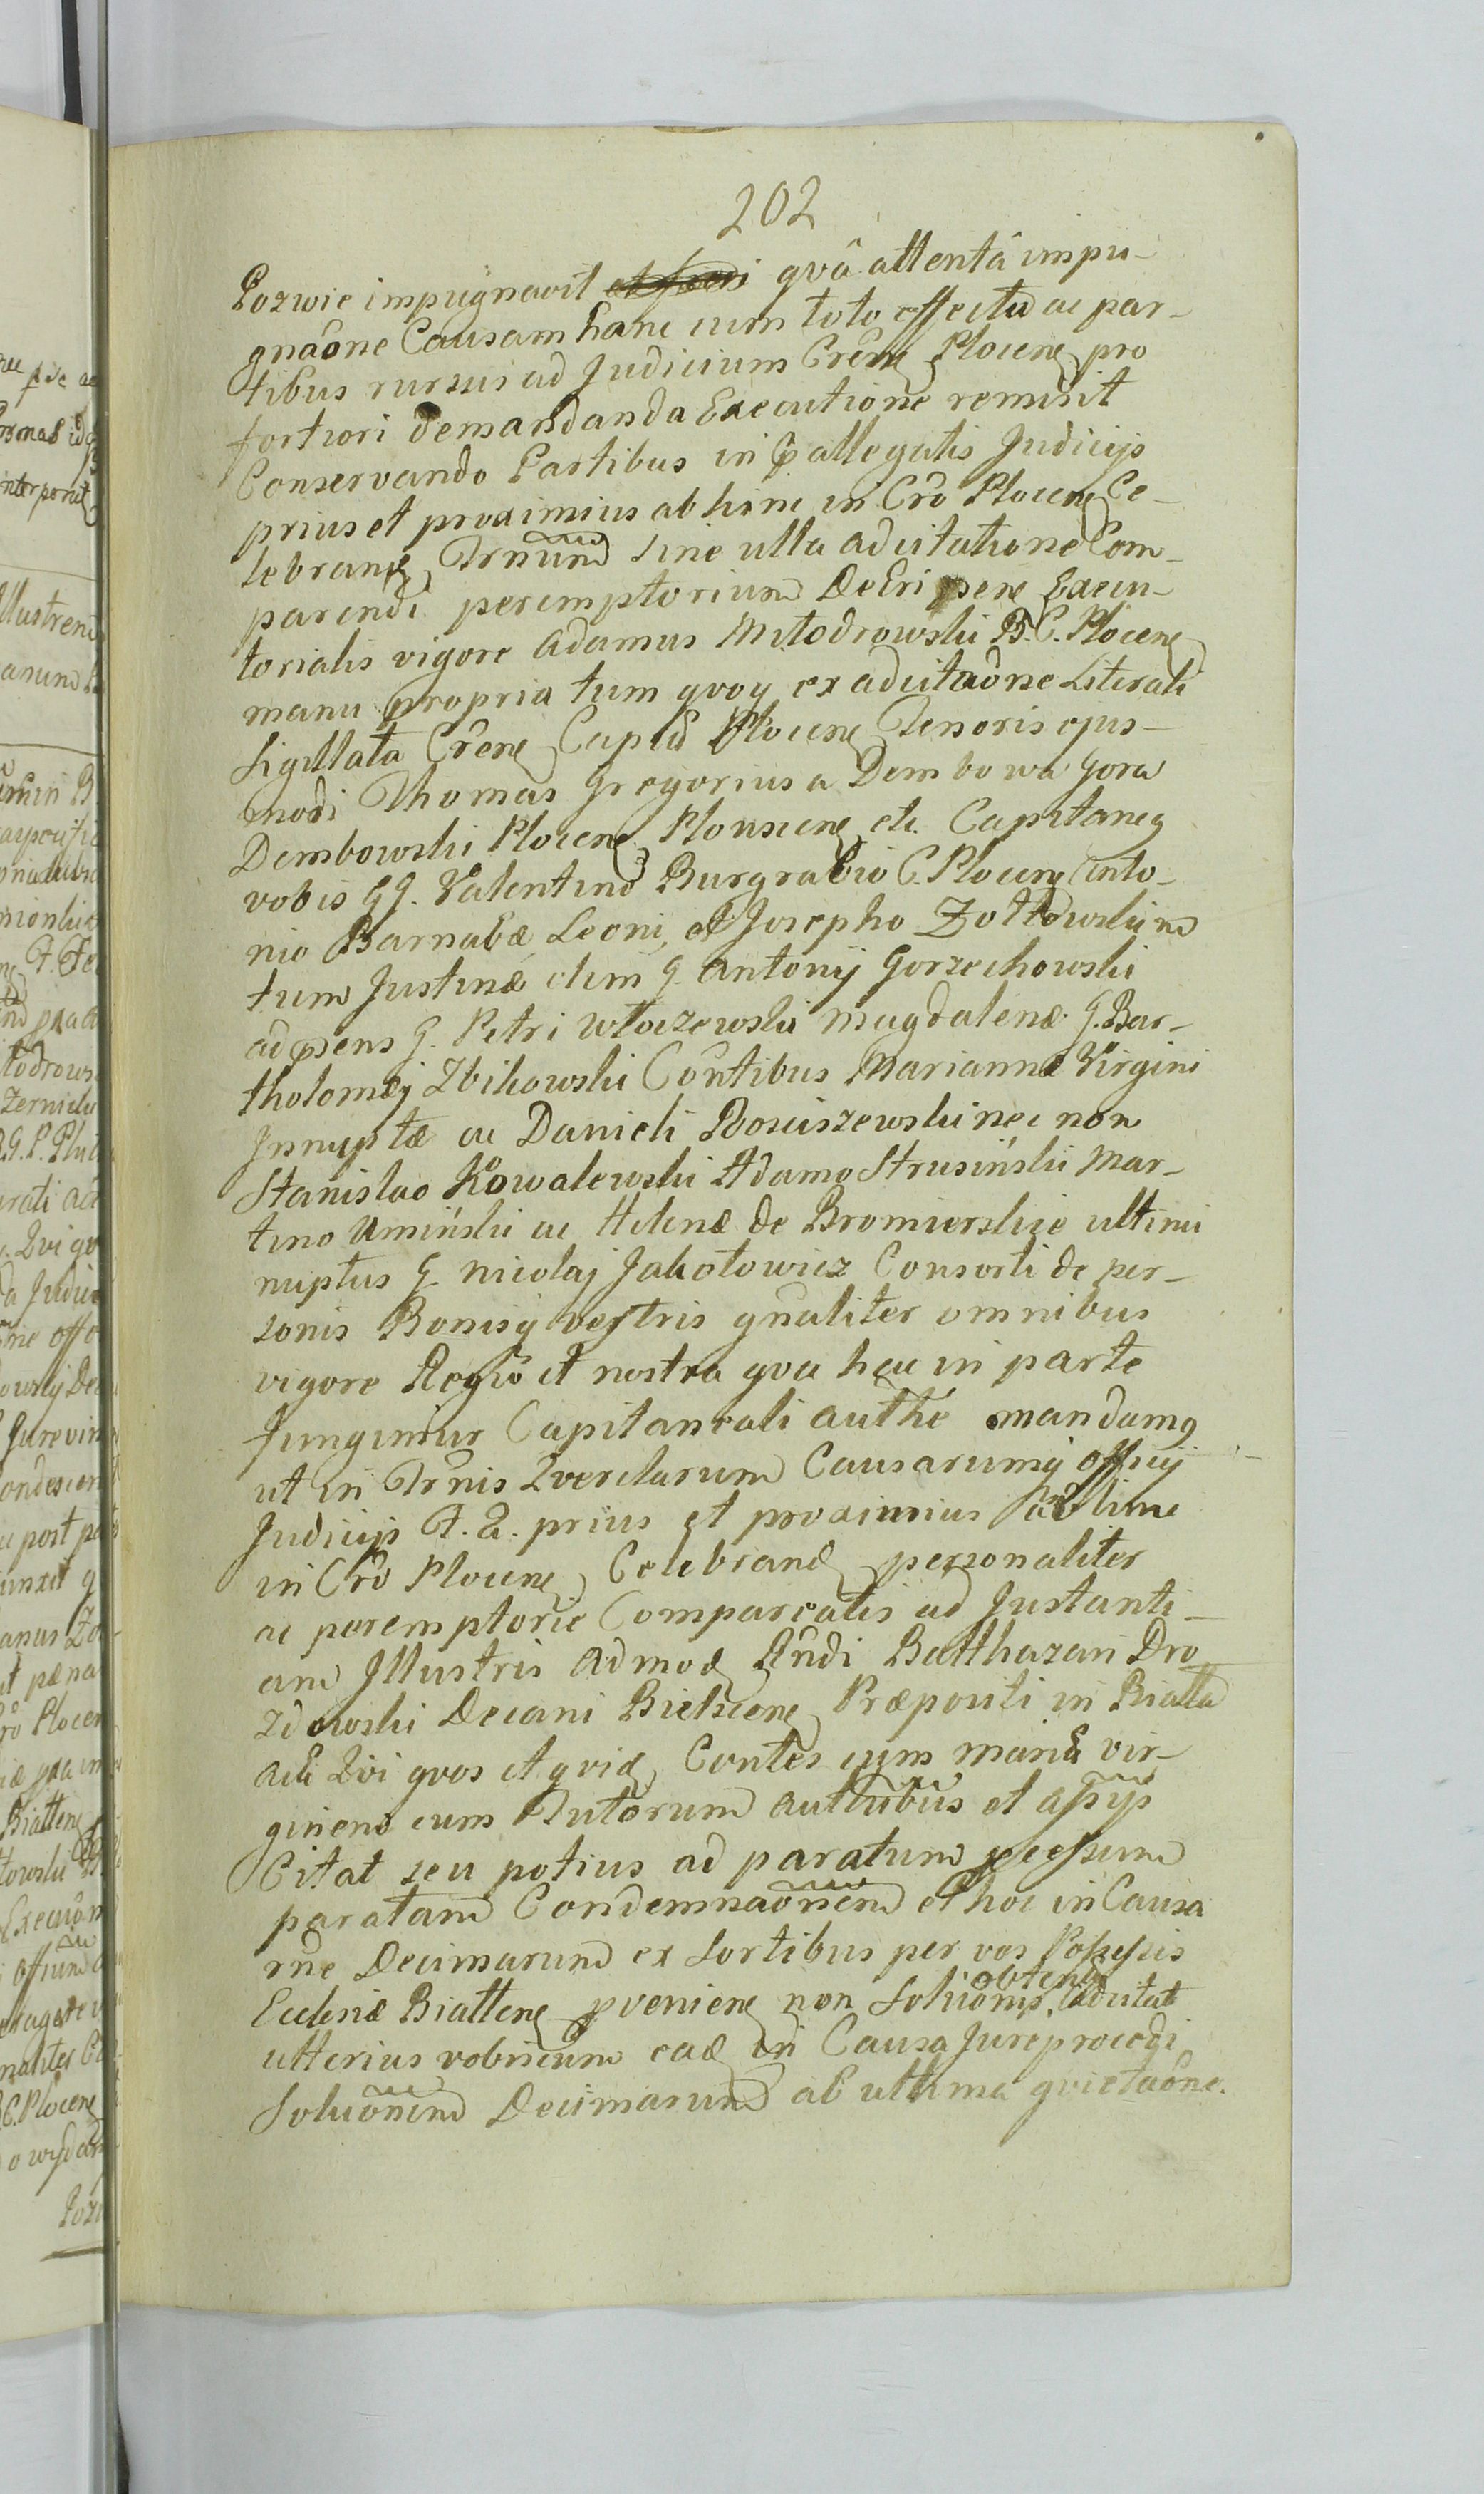 202
Pozwie impugnavit qvâ attentâ impu-
gnaône Causam hanc cum toto effectu ac par-
tibus rursus ad Judicium Crêñe Plocene pro
fortiori demandanda Executione remisit
Conservando Partibus in pallegatis Judicijs
prius et proximius ab hinc in Crô Plocene Ce-
lebrane Trnũm sine ulla adcitatione Com-
parendi peremptorium Decri psene Execu-
torialis vigore Adamus Młodrowski B. C. Plocene
manu propria tum qvoq ex adcitaône Literali
Sigillata Crêne Capld Plocene Tenoris ejus-
modi Thomas Gregorius a Dembowa Gora
Dembowski Plocene Plonscene etc. Capitaneg
vobis GG. Valentino Burgrabio C. Plocene Anto-
nio Barnabæ Leoni et Josepho Zołtowskim
tum Justinæ olim G. Antonij Gorzechowski
ad psens G. Petri Włoczewski Magdalenæ G. Bar-
tholomæj Zbikowski Côntibus Mariannæ Virgini
Innuptæ ac Danieli Rosciszewski nec non
Stanislao Kowalewski Adamo Strusiński Mar-
tino Umiński ac Helenæ de Bromierskie ultimi
nuptus G. Nicolaj Jakołowicz Consorti de per-
sonis Bonisq vestris gnaliter omnibus
vigore Regiô et nostra qva hac in parte
fungimur Capitaneali authê mandamg
ut in Trnis Qverelarum Causarumq Officij
Judicijs F. Q. prius et proximius ab hinc
in Crô Plocene Celebrand personaliter
ac peremptorie Compareatis ad Instanti-
am Illustris Admod Rndi Balthazari Dro
zdowski Decani Bielscene Præpositi in Białła
Acti Qvi qvos et qvid Contes cum Maria vir-
ginem cum Tutorum authtibus et assijs
Citat seu potius ad paratum pcessum
paratam Condemnaônem et hoc in Causa
rne Decimarum ex Sortibus per vos Possessis
Ecclesiæ Białłene pveniene non Soluônis, adcitat
obtent
ulterius vobiscum ead in Causa Jure procedi
Soluônem Decimarum ab ultima qvietaône.